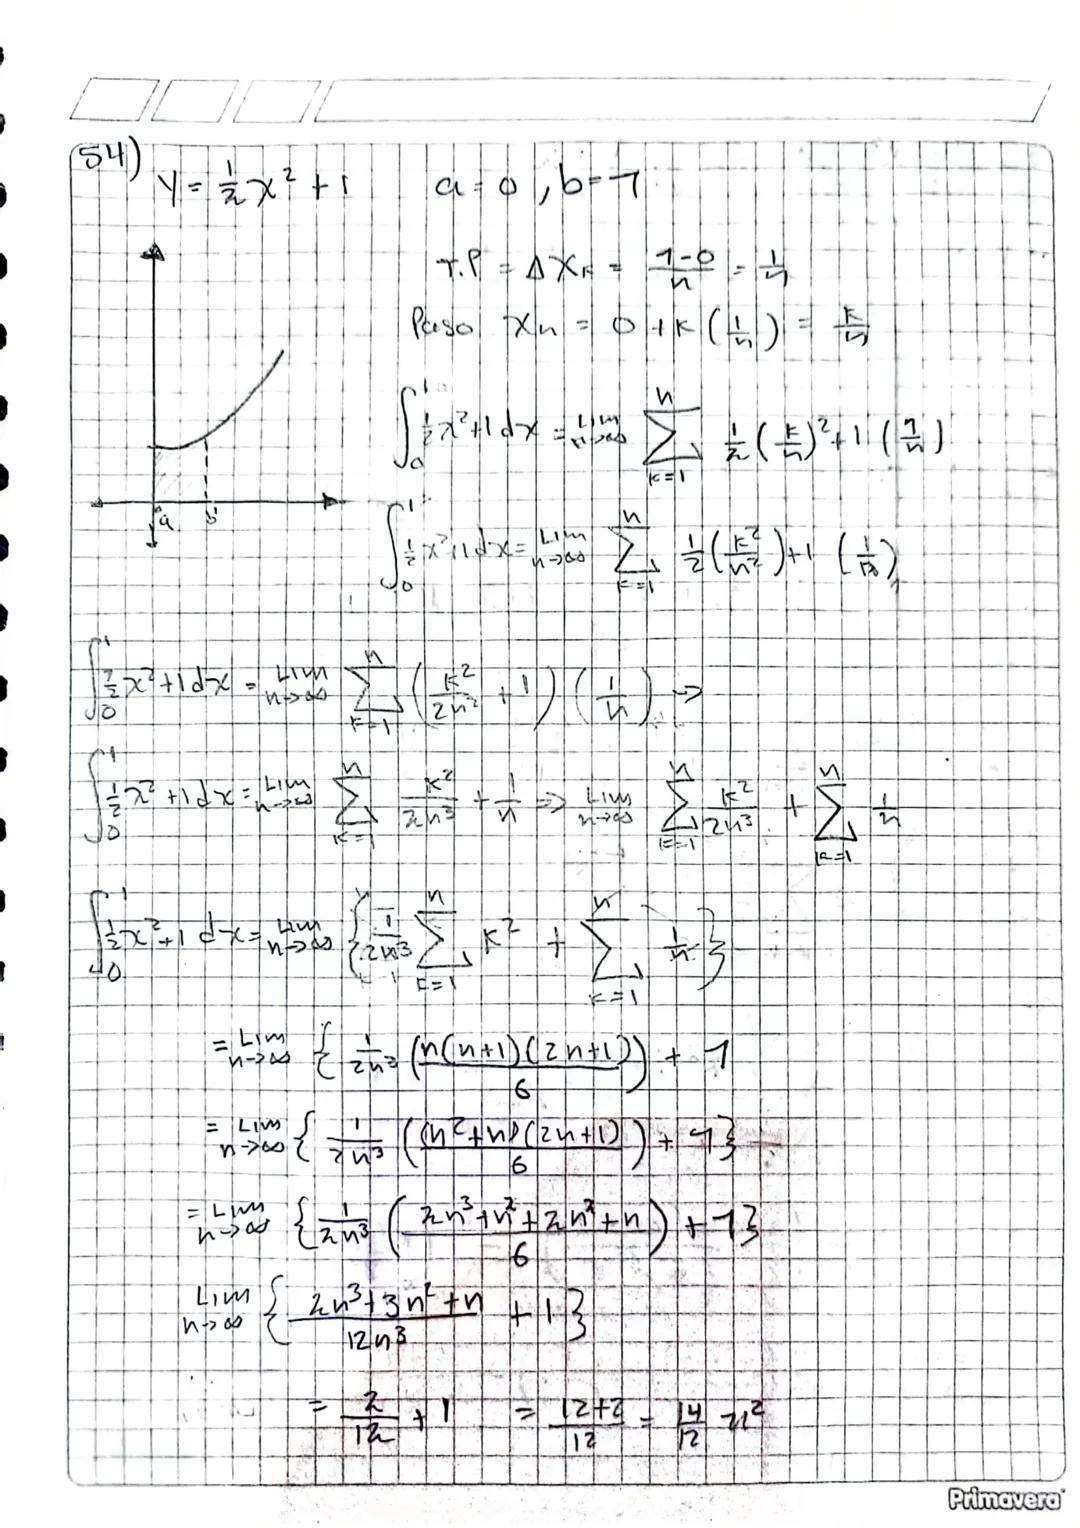 54)
y = 1/2 x² + 1    a = 0 , b = 1
T.P = ΔXk = (1-0)/n = 1/n
Paso Xn = 0 + k (1/n) = k/n
∫₀¹ 1/2 x² + 1 dx = Lim n→∞ Σ_{k=1}^{n} 1/2 (k/n)² + 1 (1/n)
a b
∫₀¹ 1/2 x² + 1 dx = Lim n→∞ Σ_{k=1}^{n} 1/2 (k²/n²) + 1 (1/n)
∫₀¹ 1/2 x² + 1 dx = Lim n→∞ Σ_{k=1}^{n} (k²/2n² + 1) (1/n) →
∫₀¹ 1/2 x² + 1 dx = Lim n→∞ Σ_{k=1}^{n} k²/2n³ + 1/n ⇒ Lim n→∞ Σ_{k=1}^{n} k²/2n³ + Σ_{k=1}^{n} 1/n
∫₀¹ 1/2 x² + 1 dx = Lim n→∞ { 1/2n³ Σ_{k=1}^{n} k² + Σ_{k=1}^{n} 1/n }
= Lim n→∞ { 1/2n³ (n(n+1)(2n+1)/6) + 1
= Lim n→∞ { 1/2n³ ((n²+n)(2n+1)/6) + 1 }
= Lim n→∞ { 1/2n³ ((2n³+n²+2n²+n)/6) + 1 }
Lim n→∞ { (2n³+3n²+n)/12n³ + 1 }
= 2/12 + 1 = (12+2)/12 = 14/12 u²
Primavera